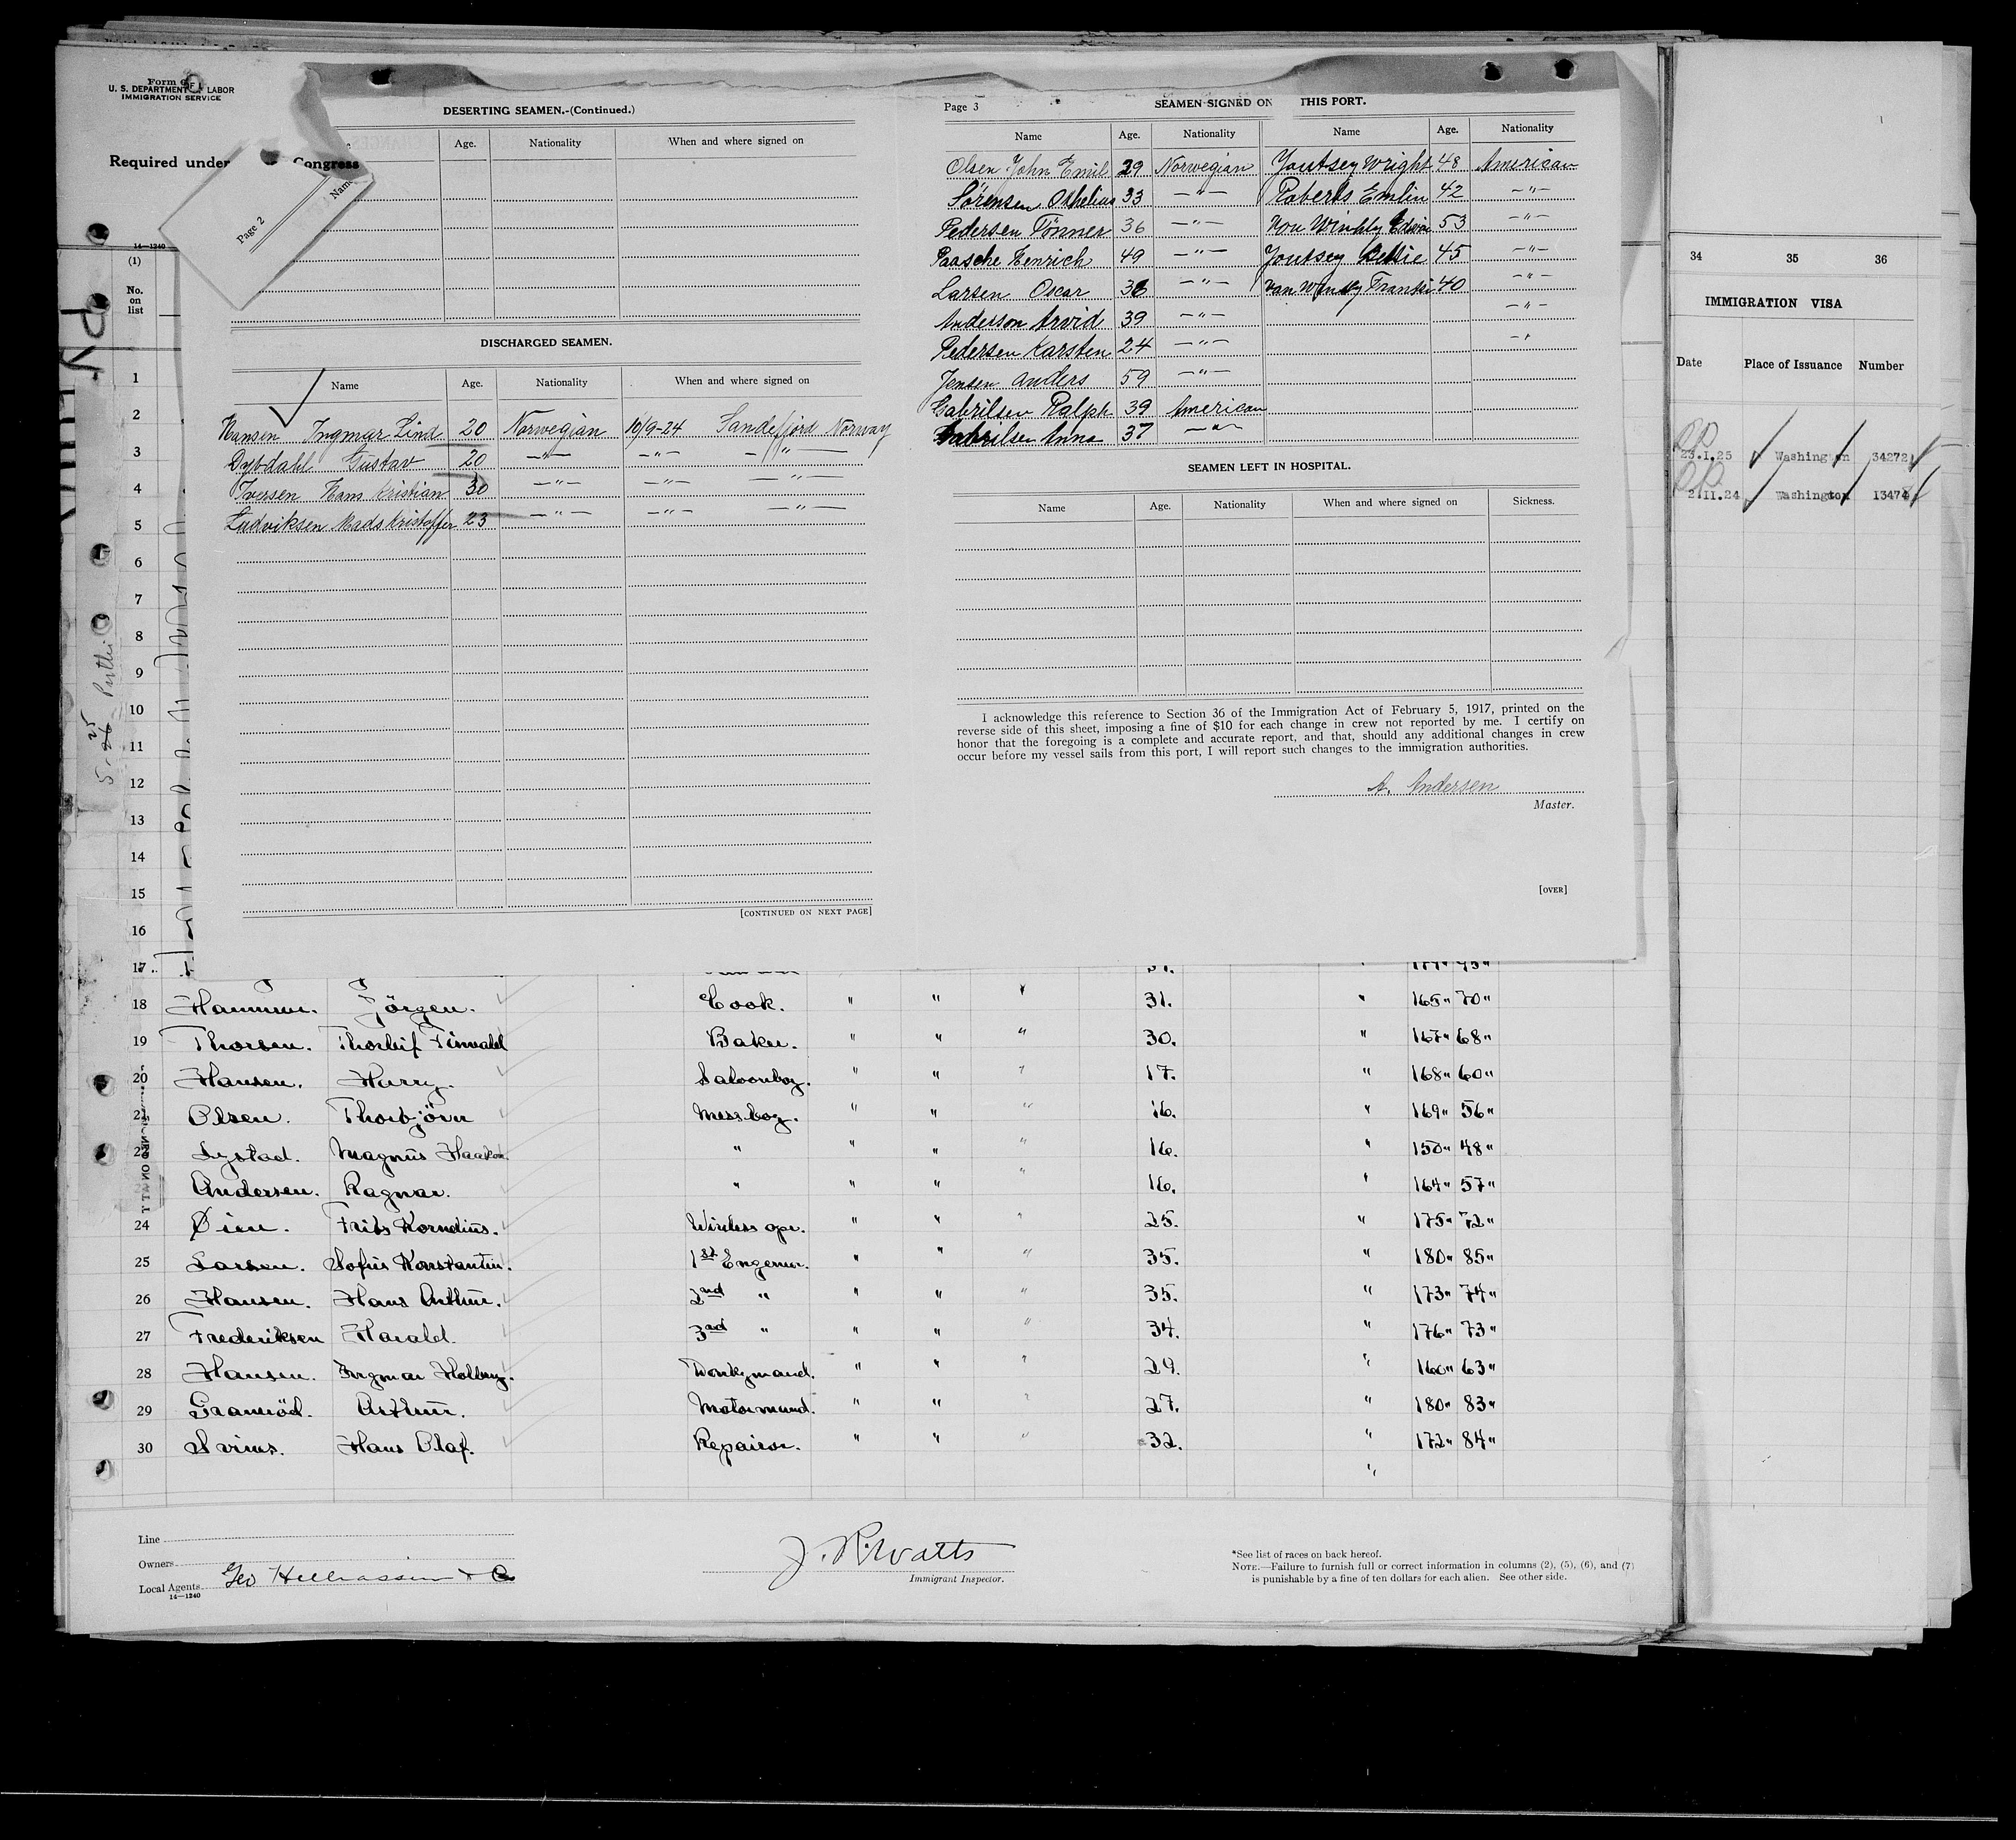 Form 6
U. S. DEPARTMENT OF LABOR
IMMIGRATION SERVICE
Required under Congress
14—1240
(1)
No.
on
list
Page 2
Name
DESERTING SEAMEN.-(Continued.)
Age. Nationality When and where signed on
DISCHARGED SEAMEN.
Name Age. Nationality When and where signed on
Hansen Ingmar Lind 20 Norwegian 10/9-24 Sandefjord Norway
Dybdahl Gustav 20 —"— —"— —"—
Iversen Hans Kristian 30 —"— —"— —"—
Ludviksen Mads Kristoffer 23 —"— —"— —"—
[CONTINUED ON NEXT PAGE]
Page 3 SEAMEN SIGNED ON THIS PORT.
Name Age. Nationality Name Age. Nationality
Olsen John Emil 29 Norwegian Youtsey Wright 48 American
Sörensen Othelius 33 —"— Roberts Emlin 42 —"—
Pedersen Tönner 36 —"— Edwin 53 —"—
Paasche Henrich 49 —"— Youtsey Bettie 45 —"—
Larsen Oscar 38 —"— 40 —"—
Anderson Arvid 39 —"— —"—
Pedersen Karsten 24 —"— —"
Jensen Anders 59 —"—
Gabrilsen Ralph 39 American
Gabrilsen Anna 37 —"—
SEAMEN LEFT IN HOSPITAL.
Name Age. Nationality When and where signed on Sickness.
I acknowledge this reference to Section 36 of the Immigration Act of February 5, 1917, printed on the
reverse side of this sheet, imposing a fine of $10 for each change in crew not reported by me. I certify on
honor that the foregoing is a complete and accurate report, and that, should any additional changes in crew
occur before my vessel sails from this port, I will report such changes to the immigration authorities.
A. Andersen
Master.
[OVER]
34 35 36
IMMIGRATION VISA
Date Place of Issuance Number
23.1.25 Washington 34272
2.11.24 Washington 13474
1
2
3
4
5
6
7
8
9
10
11
12
13
14
15
16
17
18 Hammer. Jörgen. Cook. " " " 31. " 165" 70"
19 Thorsen. Thorleif Finvald Baker. " " " 30. " 167" 68"
20 Hansen. Harry. Saloonboy. " " " 17. " 168" 60"
21 Olsen. Thorbjörn Messboy. " " " 16. " 169" 56"
Lystad. Magnus Haakon. " " " " 16. " 150" 48"
Andersen. Ragnar. " " " " 16. " 164" 57"
24 Øien. Frits Kornelius. Wireless oper. " " " 25. " 175" 72"
25 Larsen. Sofus Konstantin. 1st Engeneer. " " " 35. " 180" 85"
26 Hansen. Hans Arthur. 2nd " " " " 35. " 173" 74"
27 Frederiksen Harald. 3rd " " " " 34. " 176" 73"
28 Hansen. Ingmar Holberg. Donkymand. " " " 29. " 160" 63"
29 Graneröd. Arthur. Motormand. " " " 27. " 180" 83"
30 Hans Olaf. Repairer. " " " 32. " 172" 84"
"
Line
Owners
Local Agents Geo &
14—1240
J. R. Watts
Immigrant Inspector.
*See list of races on back hereof.
NOTE.—Failure to furnish full or correct information in columns (2), (5), (6), and (7)
is punishable by a fine of ten dollars for each alien. See other side.